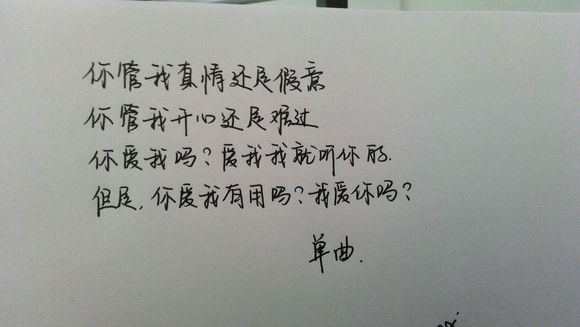 你管我真情还是假意
你管我开心还是难过
你爱我吗?爱我我就听你的.
但是,你爱我有用吗?我爱你吗?
单曲.